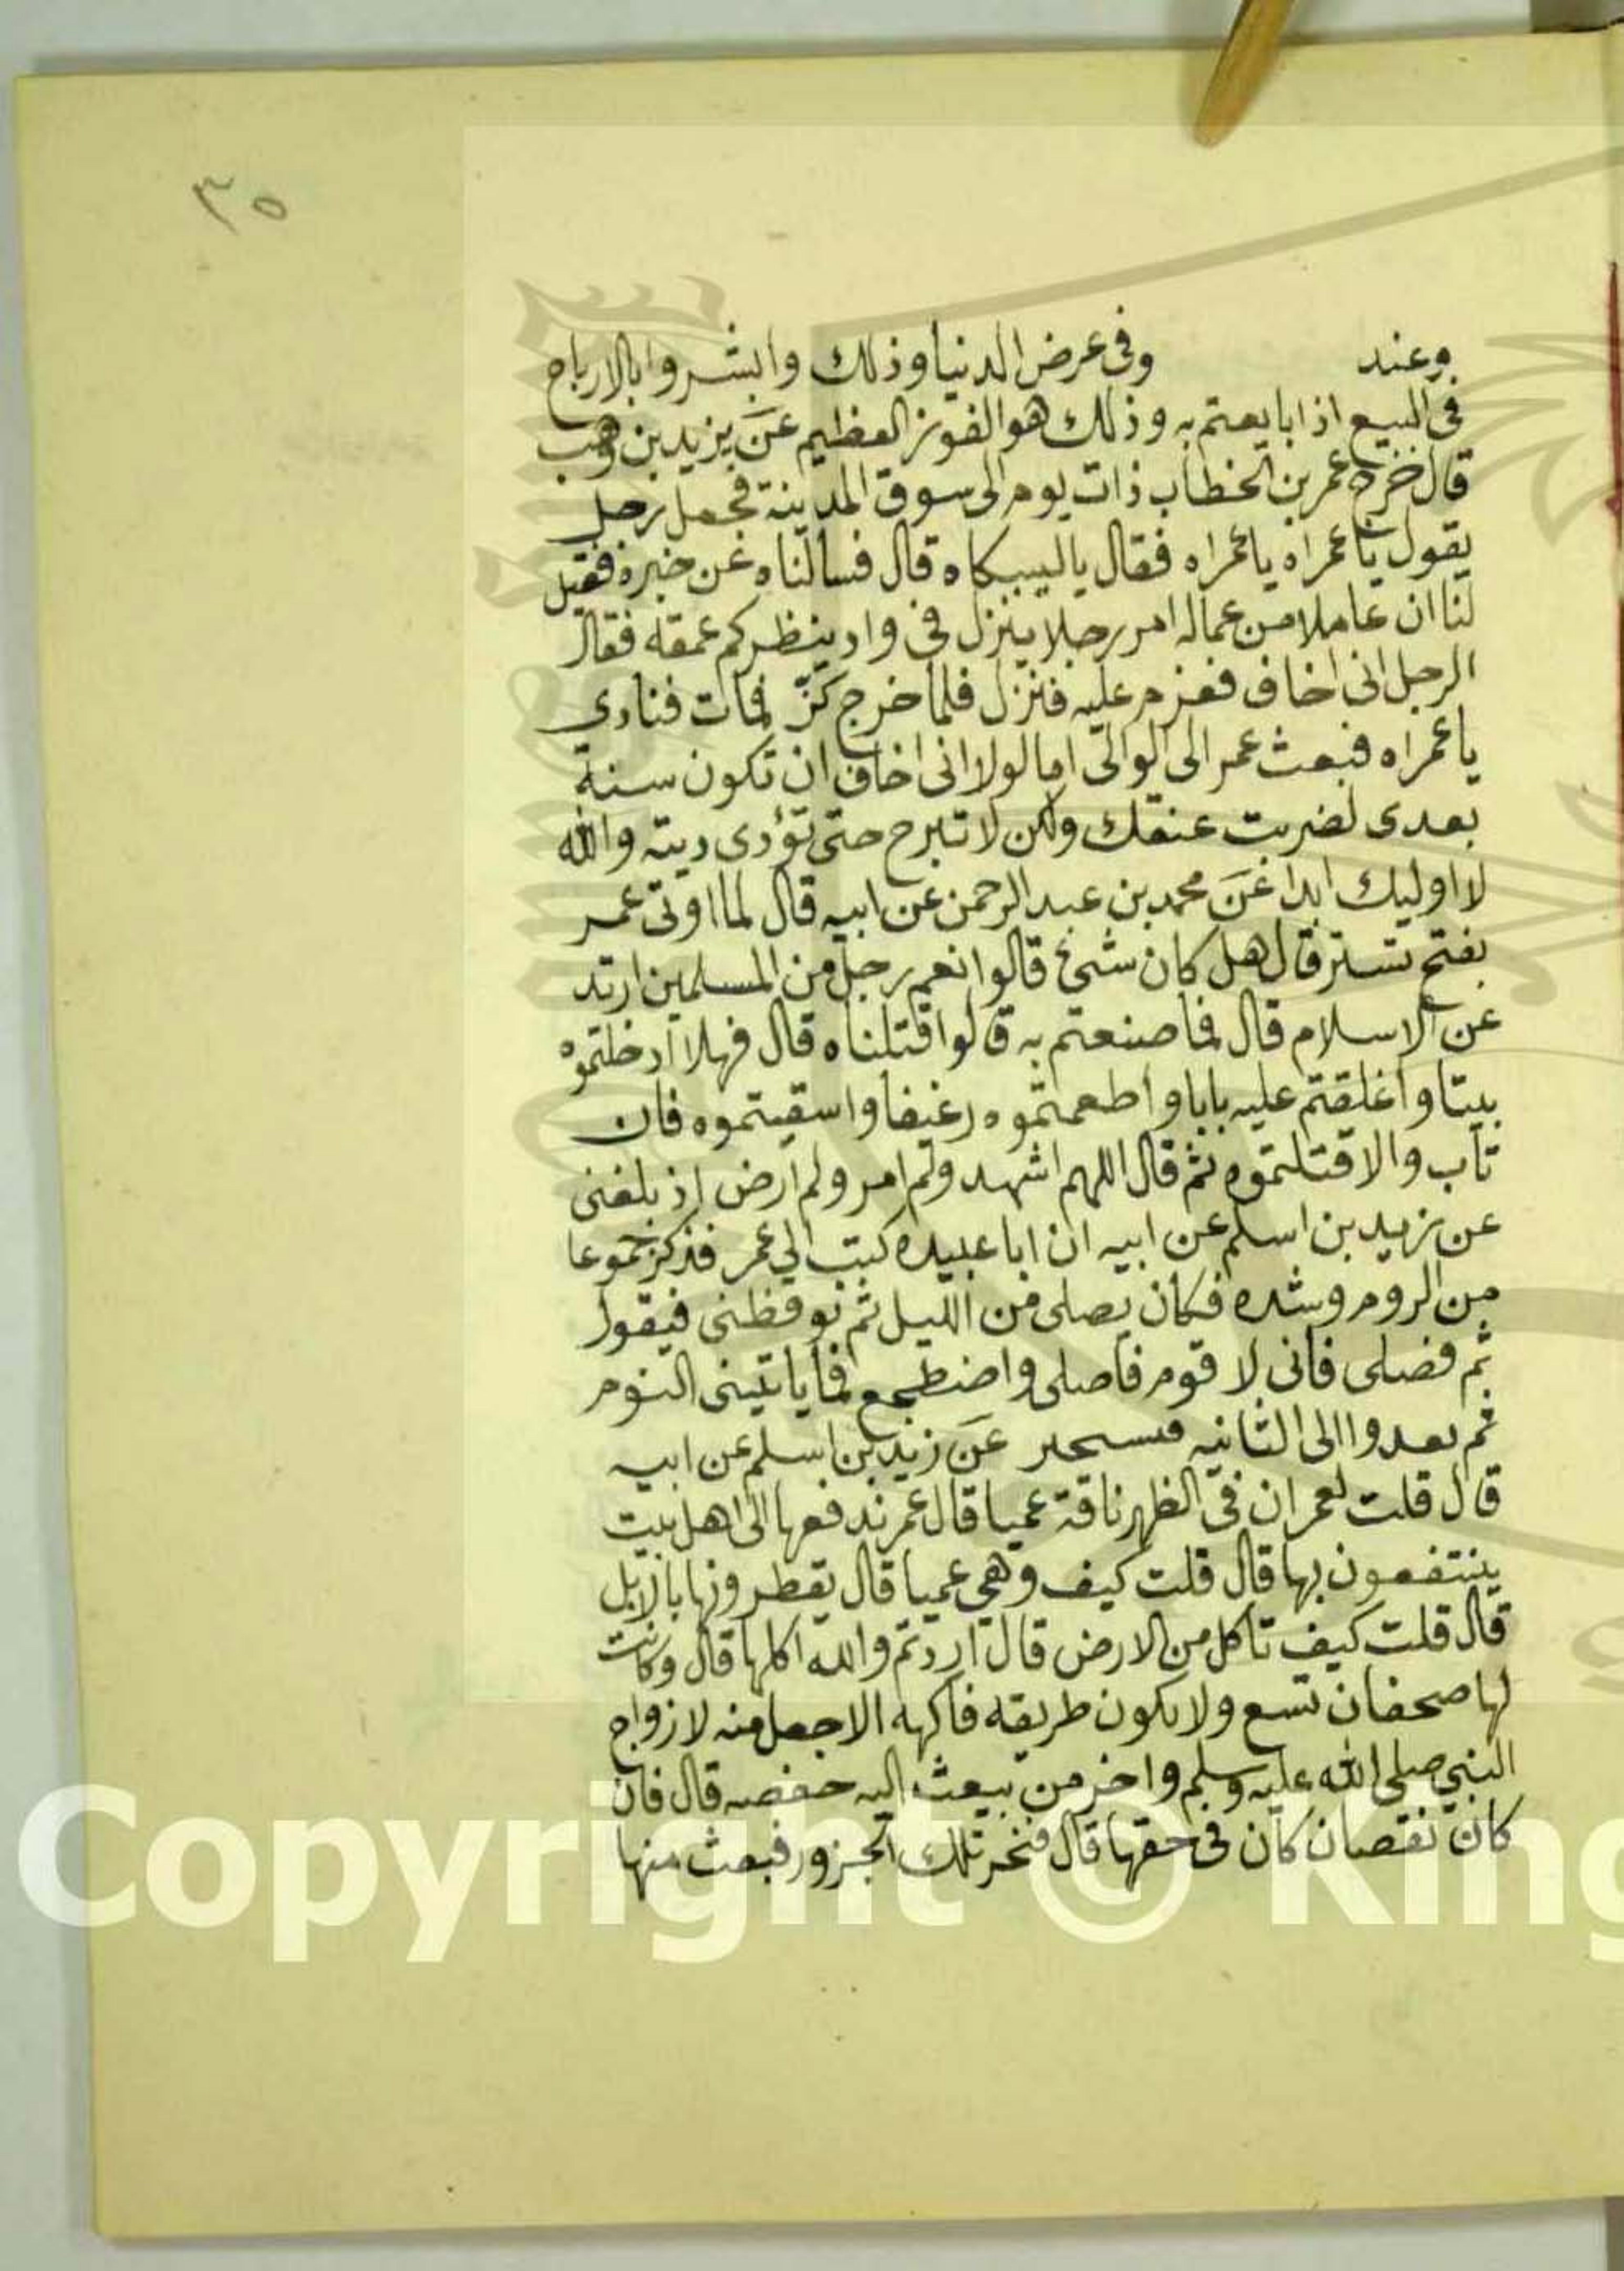 ٣٥
وعند وفى عرض الدنيا وذلك وابشروا بالارباح
فى البيع اذا بايعتم به وذلك هو الفوز العظيم عن يزيد بن وهب
قال خرج عمر بن الخطاب ذات يوم الى سوق المدينة فجعل رجل
يقول يا عمراه يا عمراه فقال يا لبيكاه قال فسالناه عن خبره فقيل
لنا ان عاملا من عماله امر رجلا ينزل فى واد ينظر كم عمقه فقال
الرجل انى اخاف فعزم عليه فنزل فلما خرج كز فمات فنادى
يا عمراه فبعث عمر الى الوالى اما لولا انى اخاف ان تكون سنة
بعدى لضربت عنقك ولكن لا تبرح حتى تؤدى ديته والله
لا اوليك ابدا عن محمد بن عبد الرحمن عن ابيه قال لما اوتى عمر
بفتح تستر قال هل كان شئ قالوا نعم رجل من المسلمين ارتد
عن الاسلام قال فما صنعتم به قالوا قتلناه قال فهلا ادخلتموه
بيتا واغلقتم عليه بابا واطعمتموه رغيفا واسقيتموه فان
تاب والا قتلتموه ثم قال اللهم اشهد ولم امر ولم ارض اذ بلغنى
عن زيد بن اسلم عن ابيه ان ابا عبيده كتب الي عمر فذكر جموعا
من الروم وشده فكان يصلى من الليل ثم يوقظنى فيقول
ثم فصلى فانى لا قوم فاصلى واضطجع فما ياتينى النوم
ثم بعدوا الى الثانيه عن زيد بن اسلم عن ابيه
قال قلت لعمر ان فى الظهر ناقة عميا قال عمر ندفعها الى اهل بيت
ينتفعون بها قال قلت كيف وهي عميا قال يقطرونها بالابل
قال قلت كيف تاكل من الارض قال اردتم والله اكلها قال وكانت
لها صحفان تسع ولا يكون طريقه فاكهه الا جعل منه لازواج
النبي صلى الله عليه وسلم واخر من يبعث اليه حفصه قال فان
كان نقصان كان فى حقها قال فنحر تلك الجزور فبعث منها
Copyright © King